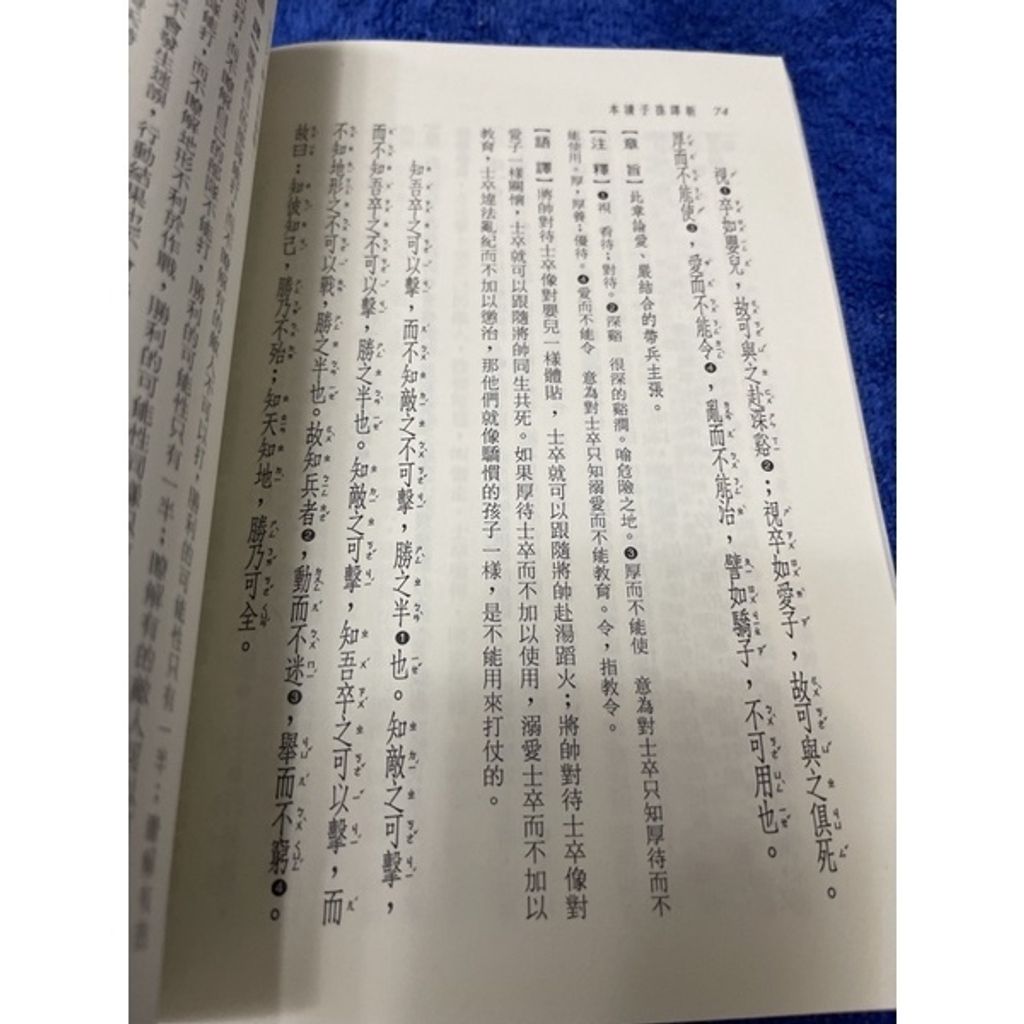 新譯孫子讀本 74
視❶卒如嬰兒，故可與之赴深谿❷；視卒如愛子，故可與之俱死。
厚而不能使❸，愛而不能令❹，亂而不能治，譬如驕子，不可用也。
【章 旨】此章論愛、嚴結合的帶兵主張。
【注 釋】❶視 看待；對待。❷深谿 很深的谿澗。喻危險之地。❸厚而不能使 意為對士卒只知厚待而不
能使用。厚，厚養；優待。❹愛而不能令 意為對士卒只知溺愛而不能教育。令，指教令。
【語 譯】將帥對待士卒像對嬰兒一樣體貼，士卒就可以跟隨將帥赴湯蹈火；將帥對待士卒像對
愛子一樣關懷，士卒就可以跟隨將帥同生共死。如果厚待士卒而不加以使用，溺愛士卒而不加以
教育，士卒違法亂紀而不加以懲治，那他們就像驕慣的孩子一樣，是不能用來打仗的。
知吾卒之可以擊，而不知敵之不可擊，勝之半❶也。知敵之可擊，
而不知吾卒之不可以擊，勝之半也。知敵之可擊，知吾卒之可以擊，而
不知地形之不可以戰，勝之半也。故知兵者❷，動而不迷❸，舉而不窮❹。
故曰：知彼知己，勝乃不殆；知天知地，勝乃可全。
而不瞭解地形不利於作戰，勝利的可能性只有一半；瞭解有的敵人
不會發生迷誤，行動結果也不會